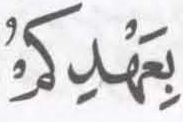 بِعَهْدِكُمْ